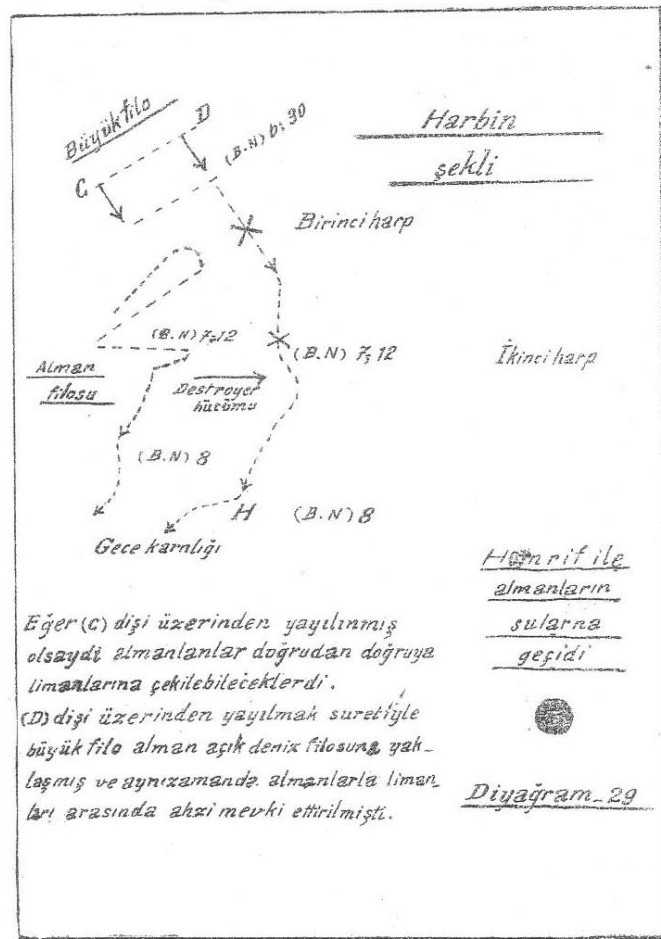 Büyük filo
D
C
(B.N) 6:30
Harbin
şekli
Birinci harp
(B.N) 7;12
(B.N) 7;12
İkinci harp
Alman
filosu
Destroyer
hücömu
(B.N) 8
H
(B.N) 8
Gece karnlığı
Hornrif ile
almanların
sularna
geçidi
Eğer (C) dişi üzerinden yayılınmış
olsaydi almanlanlar doğrudan doğruya
limanlarına çekilebileceklerdi.
(D) dişi üzerinden yayılmak suretiyle
büyük filo alman açık deniz filosuna yak-
laşmış ve aynızamanda almanlarla liman-
ları arasında ahzi mevki ettirilmişti.
Diyağram-29